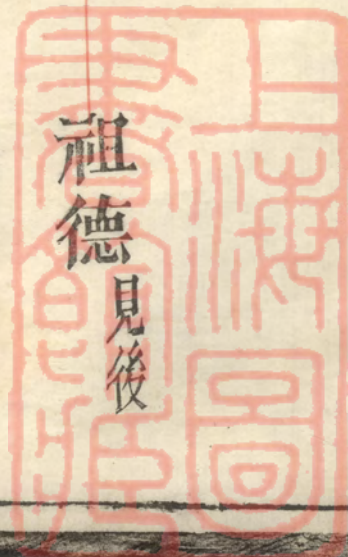 祖德見後
上海圖
書館藏